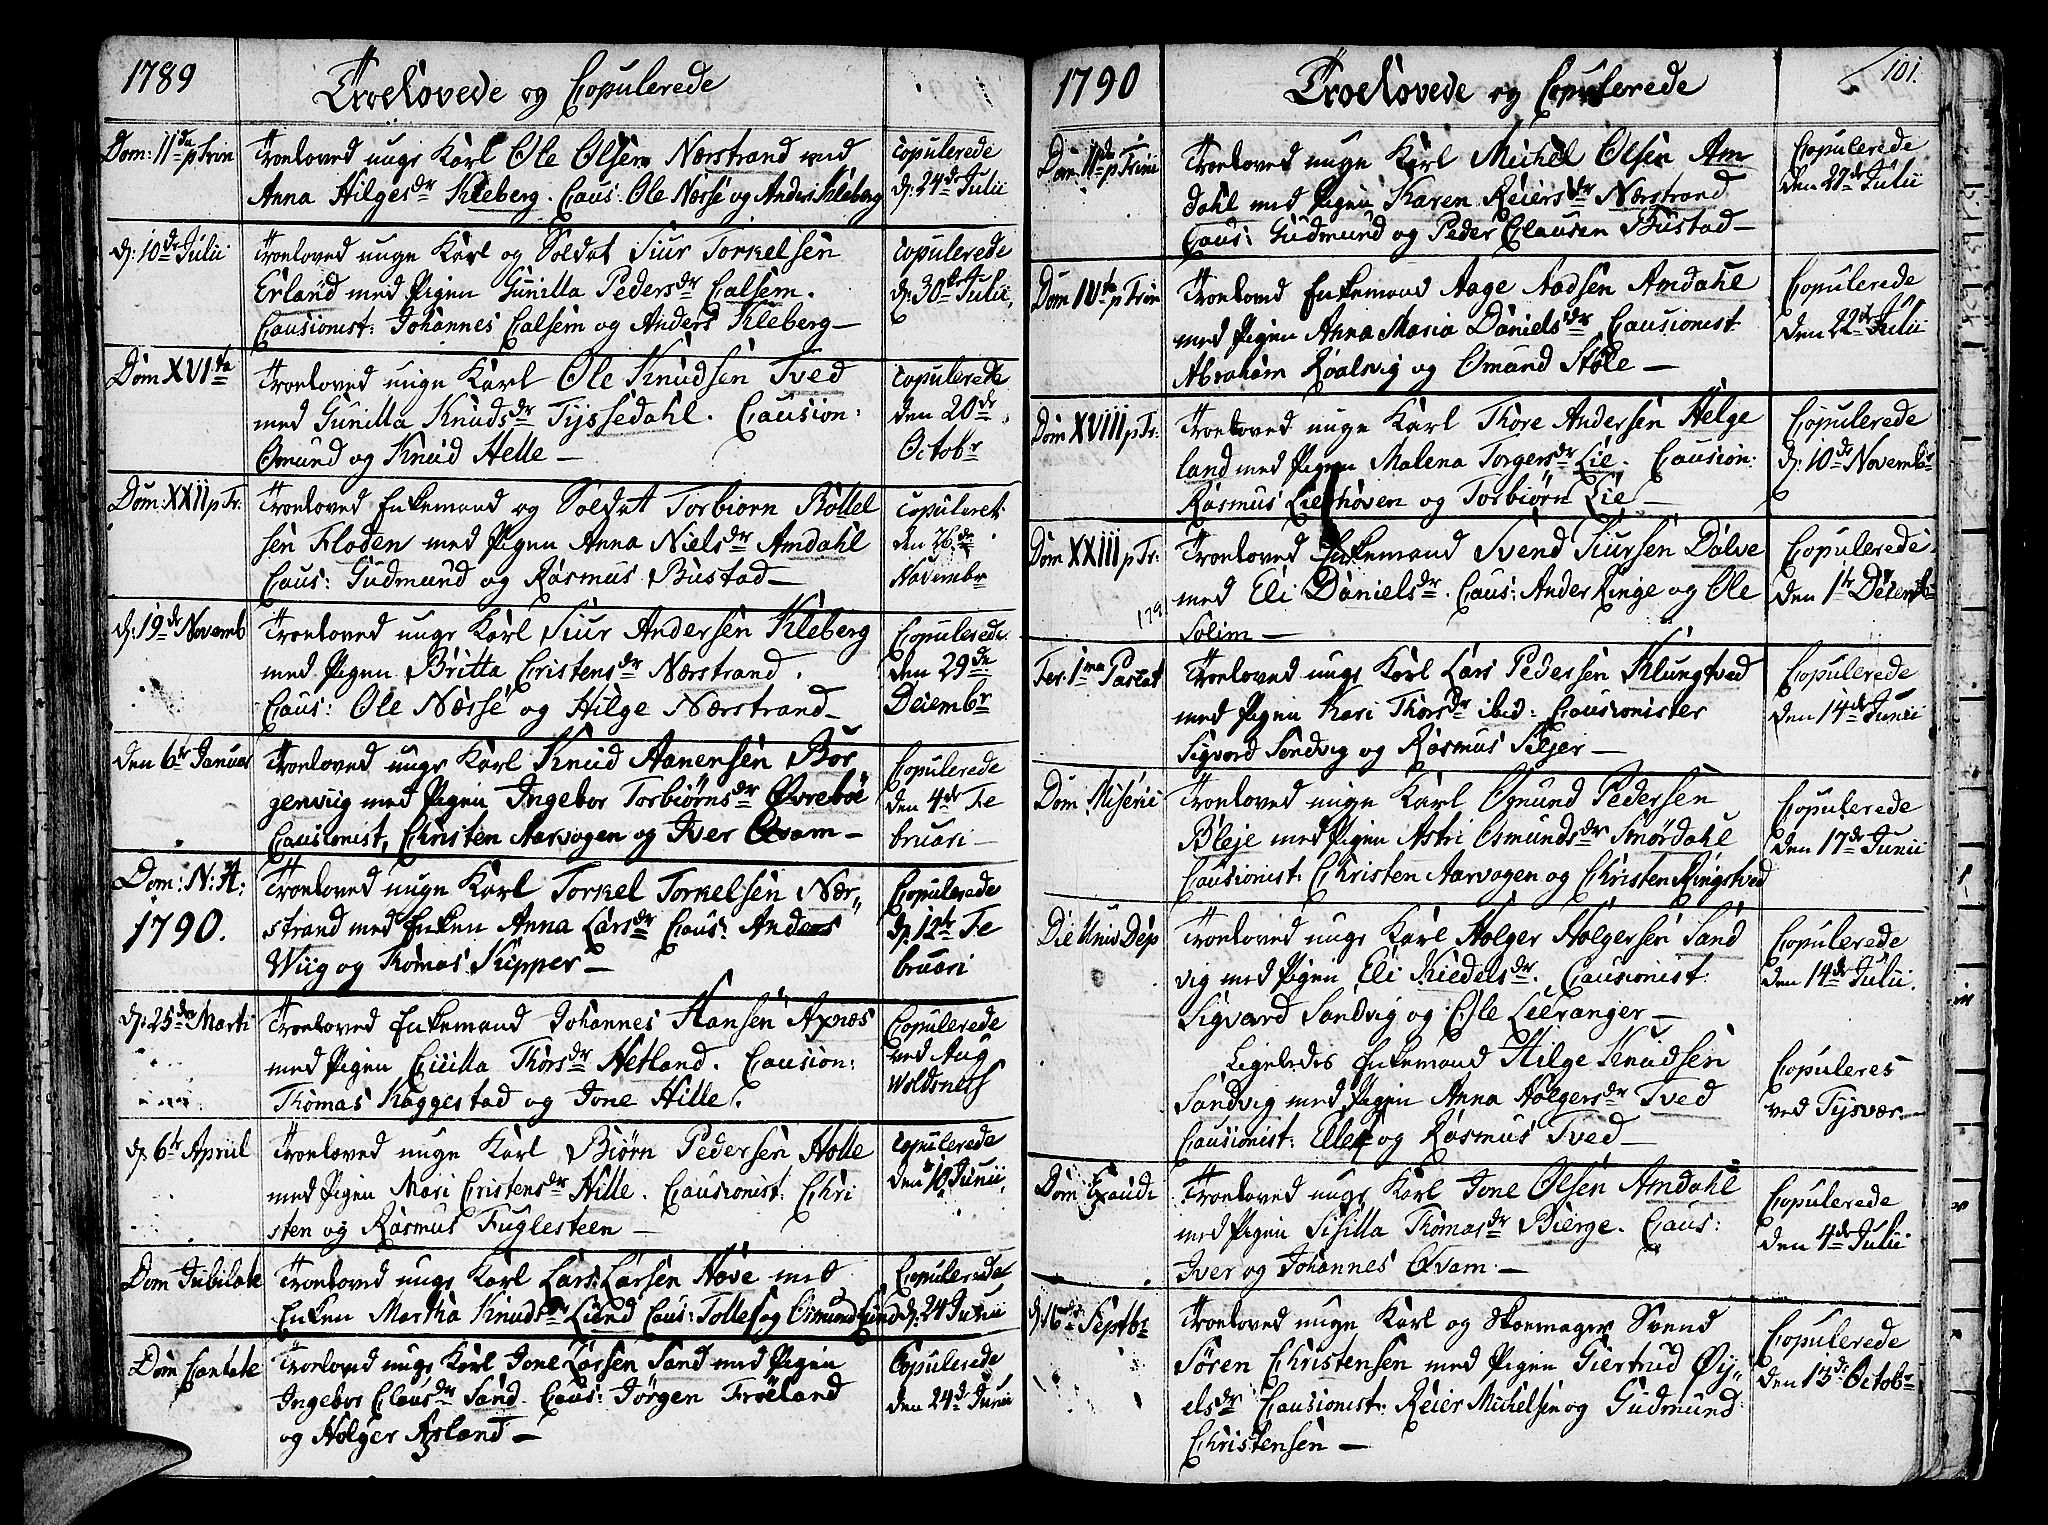 1789
Troelovede og Copulerede
Dom: 11da p Trin
Troeloved unge Karl Ole Olsen Nærstrand med
Anna Hilgesdr Kleberg. Caus: Ole Næsse og Anders Kleberg
Copulerede
d: 24de Julii
d: 10de Julii
Troeloved unge Karl og Soldat Siur Torkelsen
Erland med Pigen Gunilla Pedersdr Calsem.
Causionist: Johannes Calsem og Anders Kleberg
Copulerede
d: 30te Julii
Dom XVIta
Troeloved unge Karl Ole Knudsen Tved
med Gunilla Knudsdr Tyssedahl. Causion:
Omund og Knud Helle
Copulerede
den 20de
Octobr
Dom: XXII p Tr:
Troeloved Enkemand og Soldat Torbiørn Bottel
sen Floden med Pigen Anna Nielsdr Amdahl
Caus: Gudmund og Rasmus Bustad
Copuleret
den 26de
Novembr
d: 19de Novemb
Troeloved unge Karl Siur Andersen Kleberg
med Pigen Britta Cristensdr Nærstrand.
Caus: Ole Næsse og Hilge Nærstrand
Copulerede
den 29de
Decembr
den 6te Januar
Troeloved unge Karl Knud Aanensen Bor
genviig med Pigen Ingebor Torbiørnsdr Øvrebøe
Causionist, Christen Aarvogen og Iver Qvam
Copulerede
den 4de Fe
bruari
Dom: N: A:
1790.
Troeloved unge Karl Torkel Torkelsen Nær
strand med Enken Anna Larsdr Caus: Anders
Wiig og Thomas Skipper
Copulerede
d: 12te Fe
bruari
d: 25de Marti
Troeloved Enkemand Johannes Hansen Axnæs
med Pigen Cicilla Thorsdr Hetland. Causion:
Thomas Kaggestad og Jone Hille.
Copulerede
ved Aug
Woldsnæss
d: 6te Apriil
Troeloved unge Karl Biørn Pedersen Holle
med Pigen Mari Cristensdr Hille. Causionist: Chri
sten og Rasmus Fuglesteen
Copulerede
den 10 Junii
Dom Jubilate
Troeloved unge Karl Lars Larsen Hove med
Enken Martha Knudsdr Liend Caus: Tollef og Osmund Lund
Copulerede
d: 24 Junii
Dom Cantate
Troeloved unge Karl Jone Larsen Sand med Pigen
Ingebor Clausdr Sand. Caus: Jørgen Frøeland
og Holger Asland
Copulerede
den 24d Junii
1790
Troelovede og Copulerede
101.
Dom: 11da p Trini
Troeloved unge Karl Michel Olsen Am
dahl med Pigen Karen Reiersdr Nærstrand
Caus: Gudmund og Peder Clausen Bustad
Copulerede
den 27de Julii
Dom IVta p Trin
Troeloved Enkemand Aage Aadsen Amdahl
med Pigen Anna Maria Danielsdr Causionist
Abraham Roalvig og Omund Støle
Copulerede
den 22de Julii
Dom XVIII p Tr:
Troeloved unge Karl Thore Andersen Helge
land med Pigen Malena Torgersdr Lie. Causion:
Rasmus Liethoven og Torbiørn Lie
Copulerede
d: 10de Novembr
Dom XXIII p Tr:
Troeloved Enkemand Svend Siursen Dalve
med Eli Danielsdr. Caus: Ander Ringe og Ole
Solim
Copulerede
den 1te Decemb
179
Fer: 1ma Pascat
Troeloved unge Karl Lars Pedersen Klungtved
med Pigen Kari Thorsdr ibid: Causionister
Sigvard Sandvig og Rasmus Siljer
Copulerede
den 14de Junii
Dom Miseric
Troeloved unge Karl Omund Pedersen
Bleje med Pigen Astri Osmundsdr Snørdahl
Causionist: Christen Aarvogen og Christen Ringstved
Copulerede
den 17de Junii
Die Univ Dep
Troeloved unge Karl Holger Holgersen Sand
vig med Pigen Eli Kiedelsdr. Causionist
Sigvard Sandvig og Ole Lieranger
Copulerede
den 14de Julii.
Ligeledes Enkemand Hilge Knudsen
Sandvig med Pigen Anna Holgersdr Tved
Causionist: Ellef og Rasmus Tved
Copuleres
ved Tysvær
Dom Exaudi
Troeloved unge Karl Jone Olsen Amdahl
med Pigen Sisilla Thomasdr Bierge. Caus:
Iver og Johannes Qvam.
Copulerede
den 4de Julii
d: 16de Septbr
Troeloved unge Karl og Skoemager Svend
Søren Christensen med Pigen Giertrud Øy
elsdr Causionist: Reier Michelsen og Gudmund
Christensen
Copulerede
den 13de Octobr